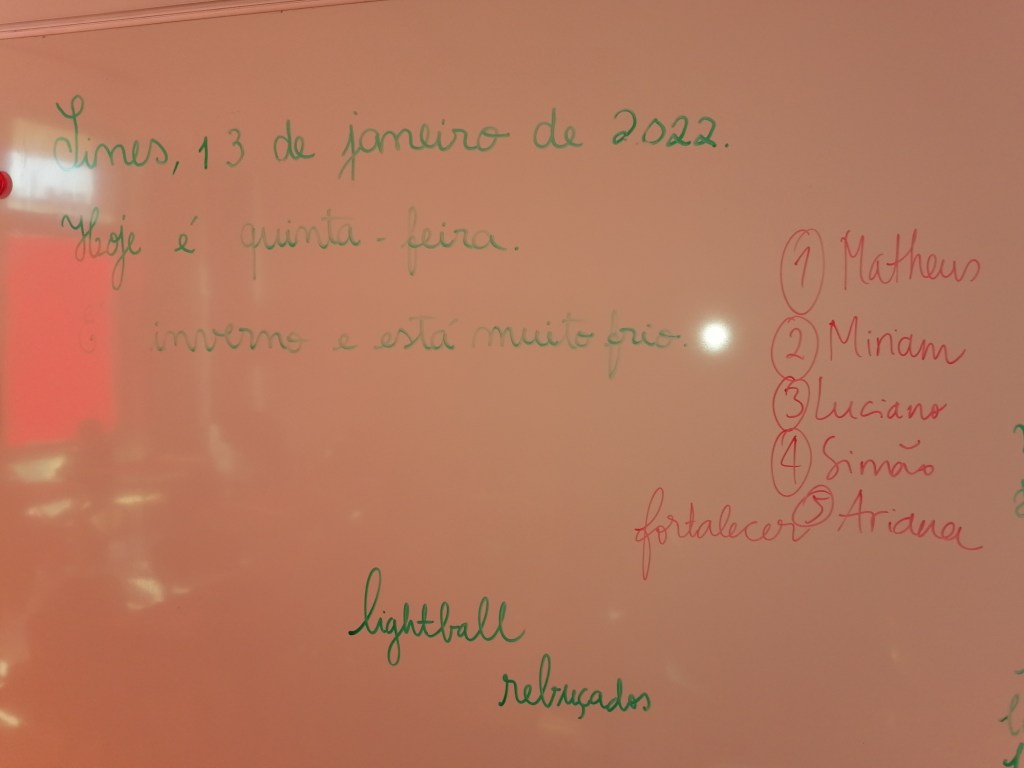 Sines, 13 de janeiro de 2022.
Hoje é quinta-feira.
É inverno e está muito frio.
1 Matheus
2 Miriam
3 Luciano
4 Simão
5 Ariana
fortalecer
lightball
rebuçados